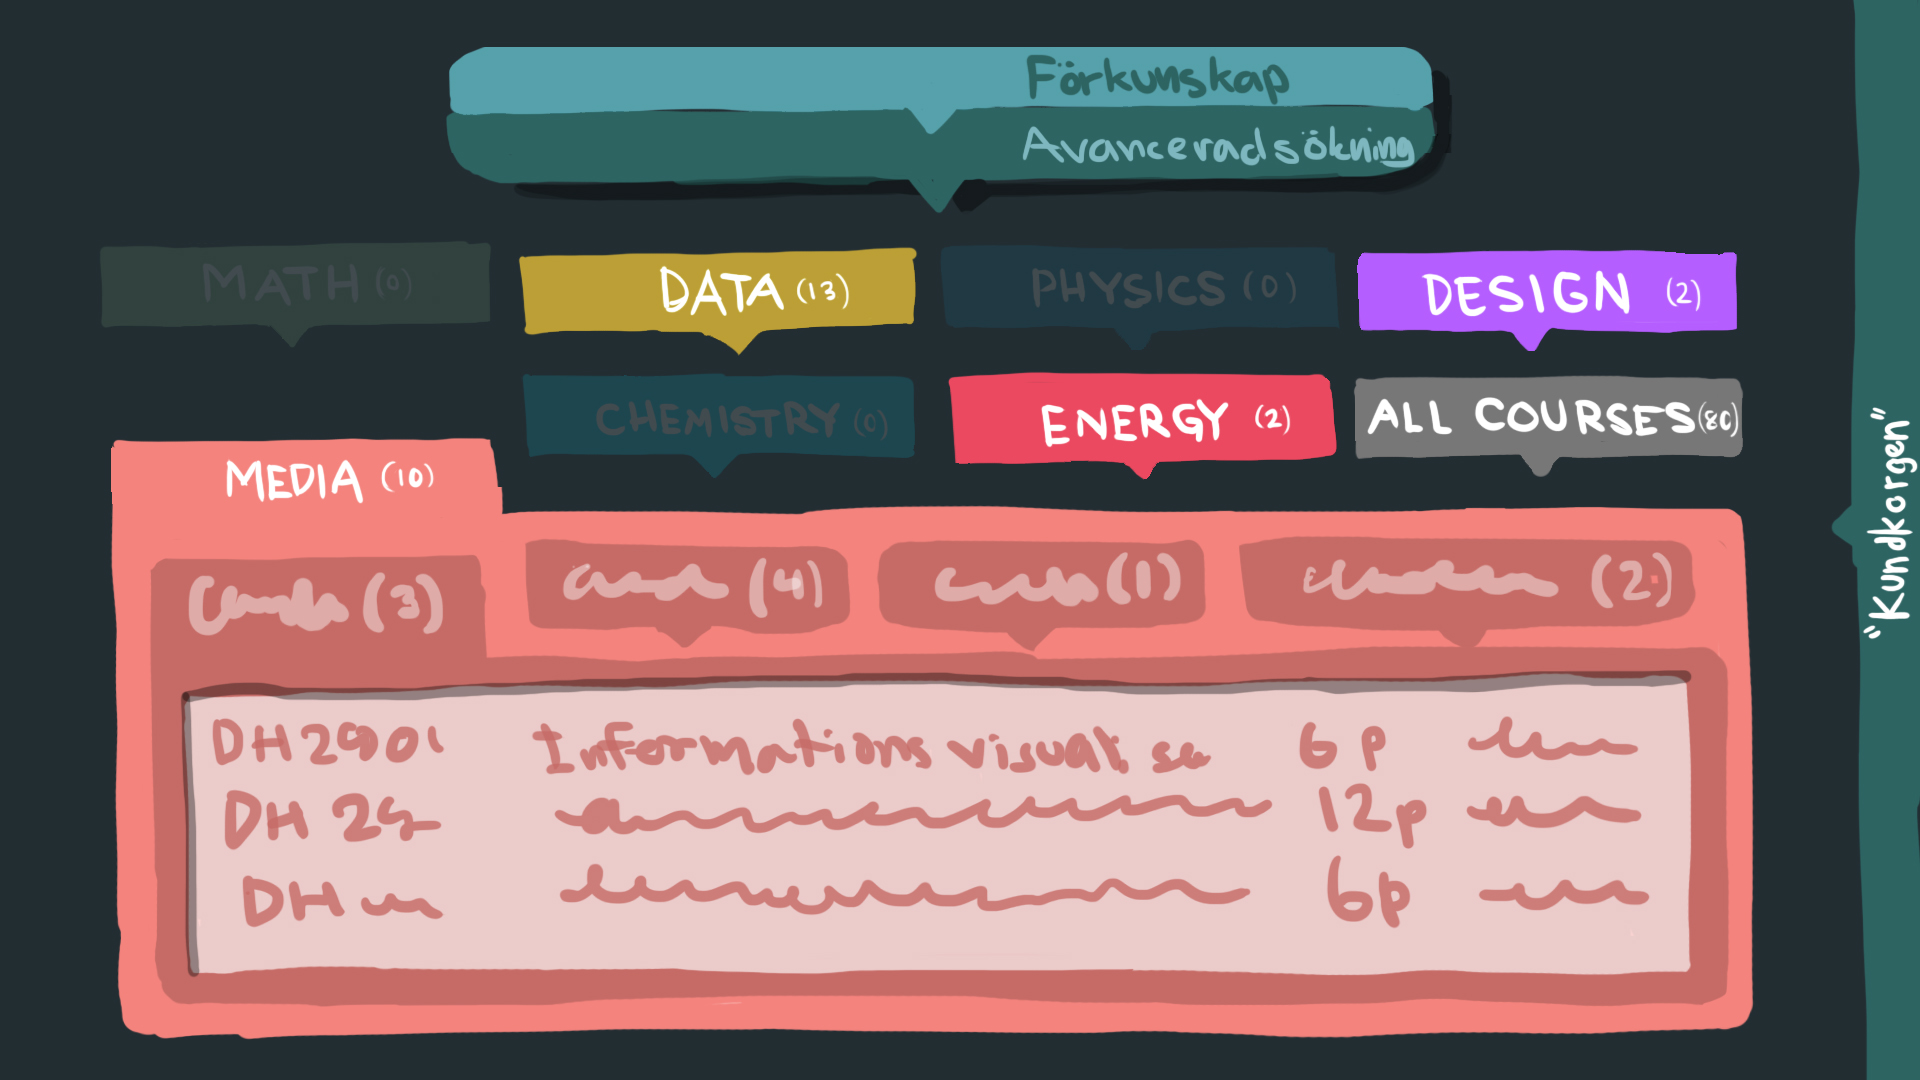 Förkunskap
Avanceradsökning
MATH (0)
DATA (13)
PHYSICS (0)
DESIGN (2)
CHEMISTRY (0)
ENERGY (2)
ALL COURSES (80)
MEDIA (10)
(3)
(4)
(1)
(2)
DH2901 Informations visualise 6p
DH 29 12p
DH 6p
"Kundkorgen"